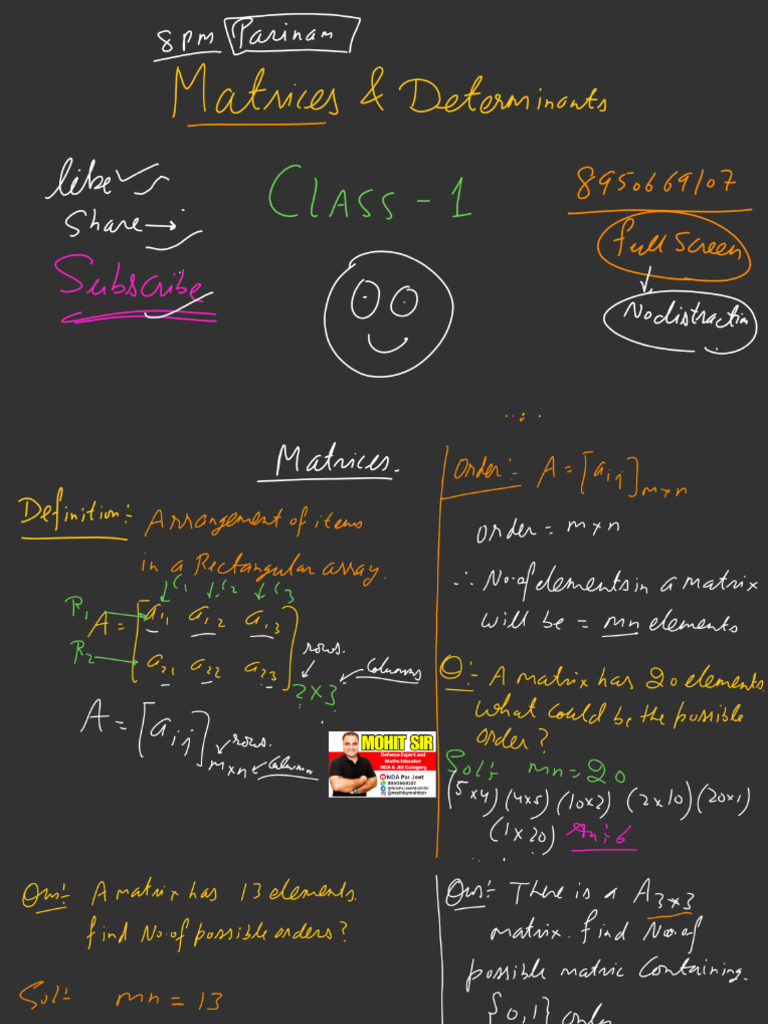 8 PM Parinam
Matrices & Determinants
like
Share →
Subscribe
CLASS - 1
8950669107
full Screen
No distraction
Matrices.
Definition:- Arrangement of items
in a Rectangular array.
C1 C2 C3
R1 A = [a11 a12 a13
R2 a21 a22 a23] 2×3
rows.
Columns
A = [aij] m×n
rows.
Column
MOHIT SIR
Defence Expert and
Maths Educator
NDA & JEE Category
NDA Par Jeet
8950669107
Order:- A = [aij] m×n
order = m×n
∴ No. of elements in a matrix
will be = mn elements
Q:- A matrix has 20 elements.
What could be the possible
order?
Sol:- mn = 20
(5×4) (4×5) (10×2) (2×10) (20×1)
(1×20) An:- 6
Qus:- A matrix has 13 elements.
find No. of possible orders?
Sol:- mn = 13
Qus:- There is a A3×3
matrix. find No. of
possible matric Containing.
{0,1} order